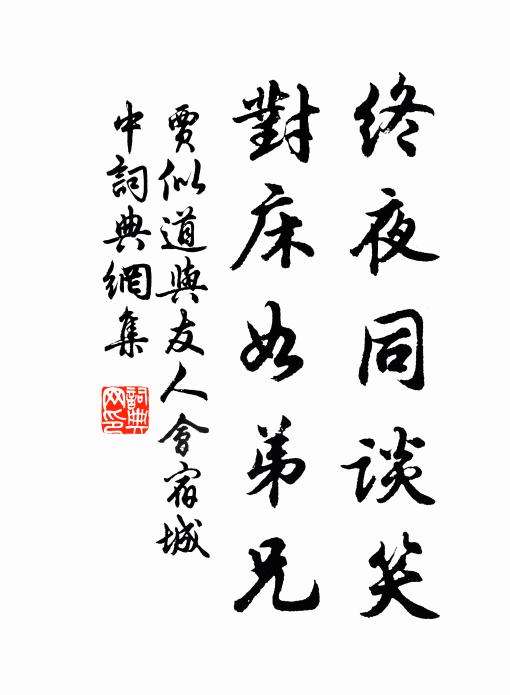 終夜同談笑
對床如弟兄
賈似道與友人會宿城
中詞典網集
詞典
网印